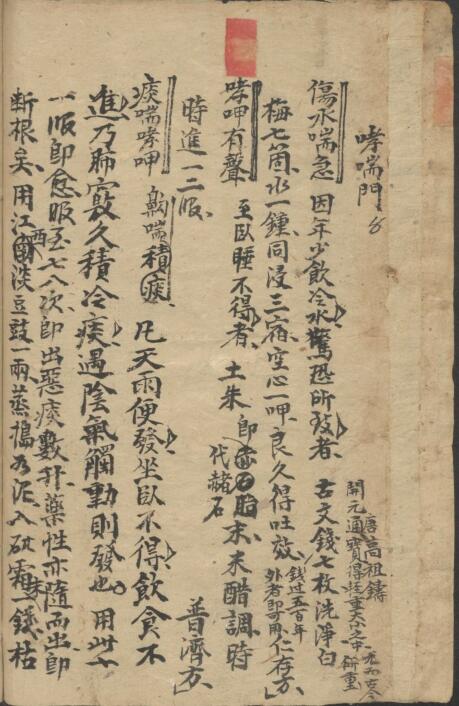 哮喘門
傷水喘急 因年少飲冷水驚恐所致者 古文錢七枚洗淨白
唐高祖鑄
開元通寶得輕重大小之中
梅七箇水一鍾同浸三宿空心一呷良久得吐效 錢過五百年外者即可用 仁存方
哮呷有聲 至臥睡不得者 土朱 即代赭石 末米醋調時
時進一二服 普濟方
痰喘哮呷 齁喘積痰 凡天雨便發坐臥不得飲食不
進乃肺竅久積冷痰遇陰氣觸動則發也 用此
一服即愈服至七八次即出惡痰數升藥性亦隨而出即
断根矣 用江西淡豆豉一兩蒸搗為泥入砒霜末一錢枯